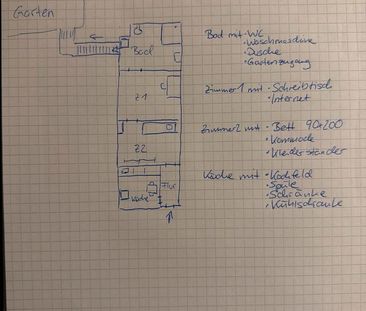 Garten
Bad
Z1
Z2
Flur
Küche
Bad mit • WC
• Waschmaschine
• Dusche
• Gartenzugang
Zimmer 1 mit • Schreibtisch
• Internet
Zimmer 2 mit • Bett 90x200
• Kommode
• Kleiderständer
Küche mit • Kochfeld
• Spüle
• Schränke
• Kühlschrank